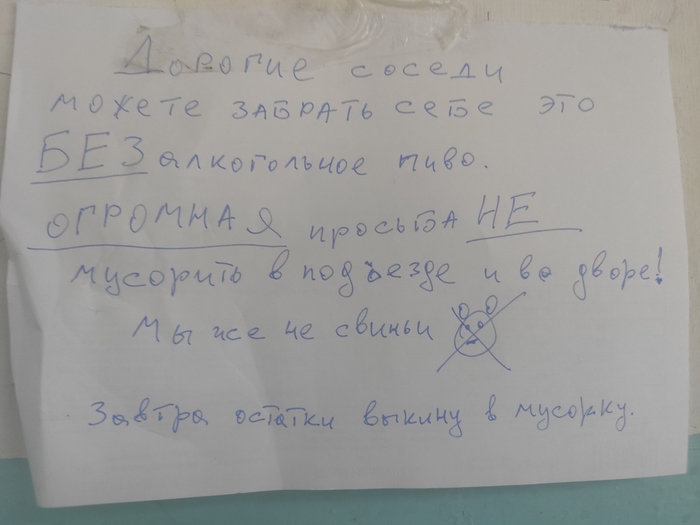 Дорогие соседи
можете забрать себе это
БЕЗ алкогольное пиво.
ОГРОМНАЯ просьба НЕ
мусорить в подъезде и во дворе!
Мы же не свиньи
Завтра остатки выкину в мусорку.